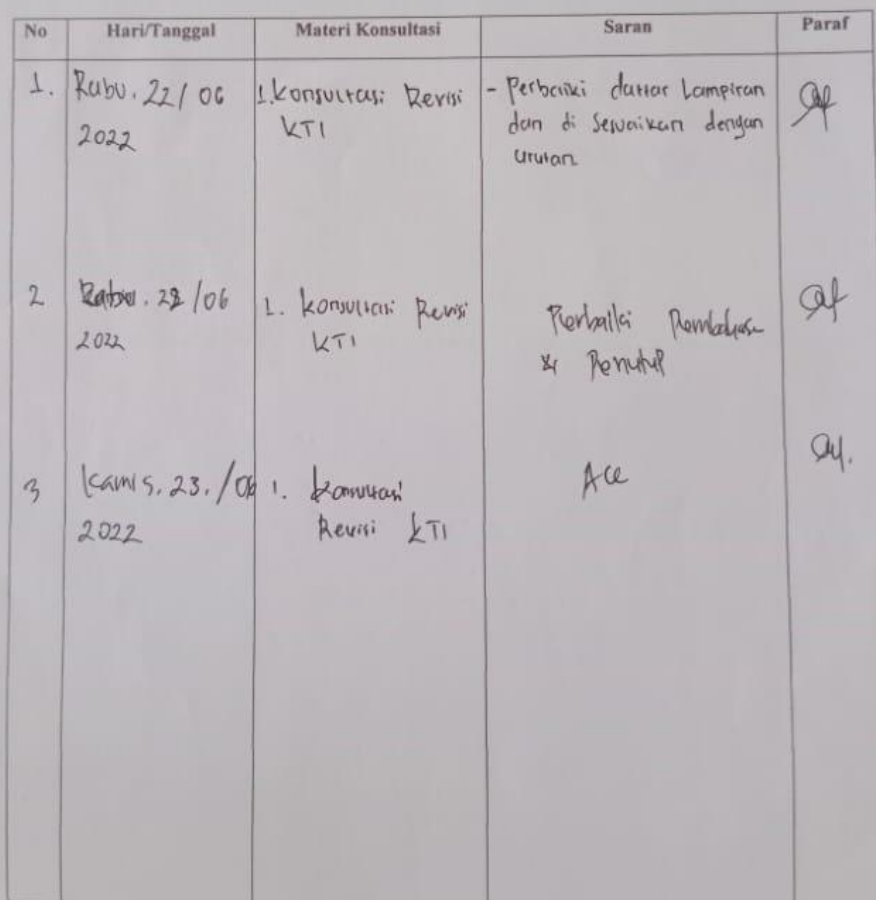 No Hari/Tanggal Materi Konsultasi Saran Paraf
1. Rabu. 22/06 1. Konsultasi Revisi - Perbaiki daftar Lampiran
2022 KTI dan di Sesuaikan dengan
urutan
2 Rabu. 22/06 1. Konsultasi Revisi Perbaiki Pembahasan
2022 KTI & Penutup
3 Kamis, 23./06 1. Konsultasi Acc
2022 Revisi KTI